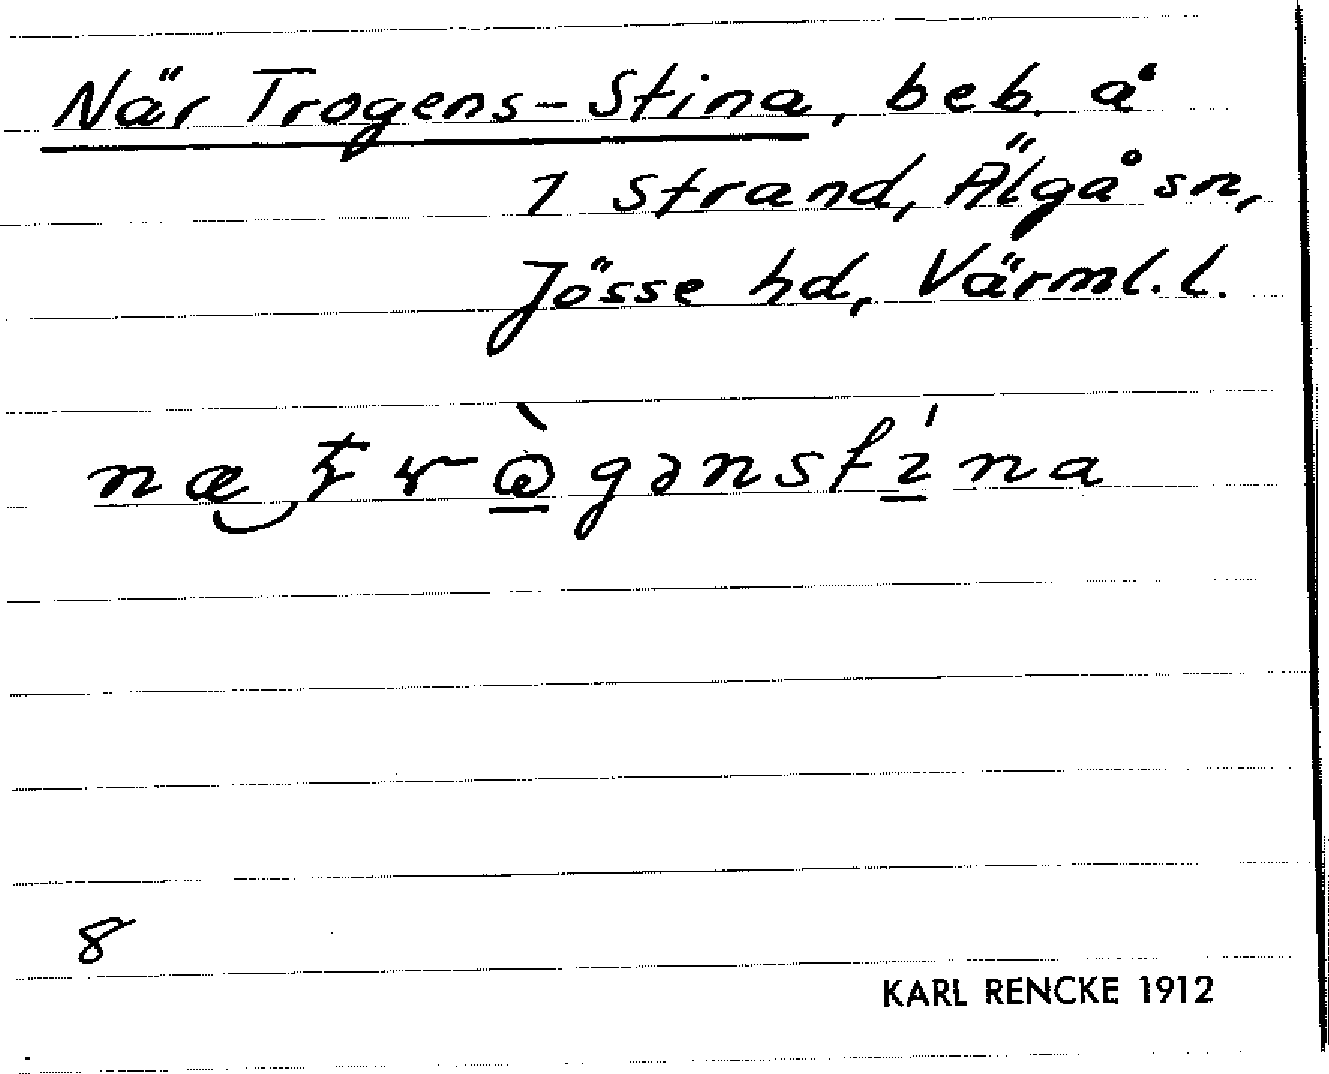 När Trogens-Stina, beb. å
1 Strand, Älgå sn,
Jösse hd, Värml. l.
8
KARL RENCKE 1912